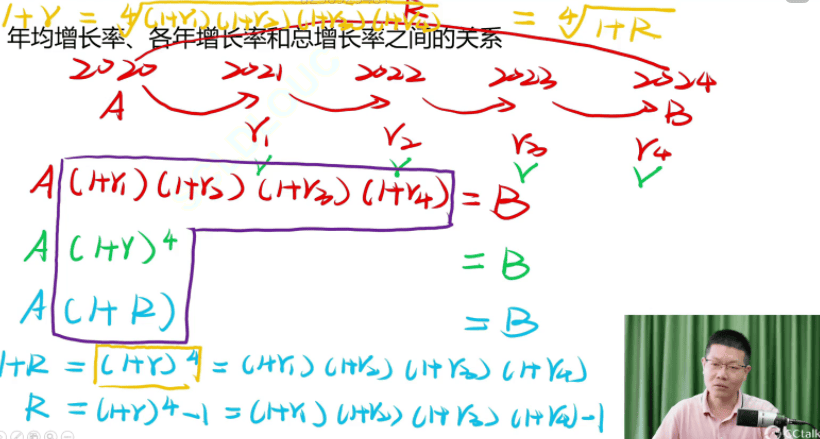 1+r = ⁴√(1+r₁)(1+r₂)(1+r₃)(1+r₄) = ⁴√1+R
R
年均增长率、各年增长率和总增长率之间的关系
2020 2021 2022 2023 2024
A B
r₁ r₂ r₃ r₄
✓ ✓ ✓ ✓
A (1+r₁) (1+r₂) (1+r₃) (1+r₄) = B
A (1+r)⁴ = B
A (1+R) = B
1+R = (1+r)⁴ = (1+r₁) (1+r₂) (1+r₃) (1+r₄)
R = (1+r)⁴-1 = (1+r₁) (1+r₂) (1+r₃) (1+r₄)-1
CCtalk